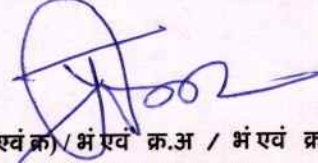 एवं क्र) / भं एवं क्र.अ / भं एवं क्र